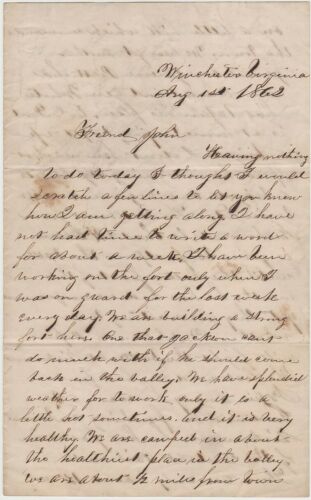 Winchester Virginia
Aug 1st 1862
Friend John
Haveing nothing
to do today I thought I would
scratch a few lines to let you know
how I am getting along I have
not had time to write a word
for about a week, I have been
working on the fort only when I
was on guard for the last week
every day. We are building a strong
fort here. One that Jackson cant
do much with if he should come
back in the valley. We have splendid
weather for to work, only it is a
little hot sometimes. and it is very
healthy. We are camped in about
the healthiest place in the valley
we are about 2 miles from town